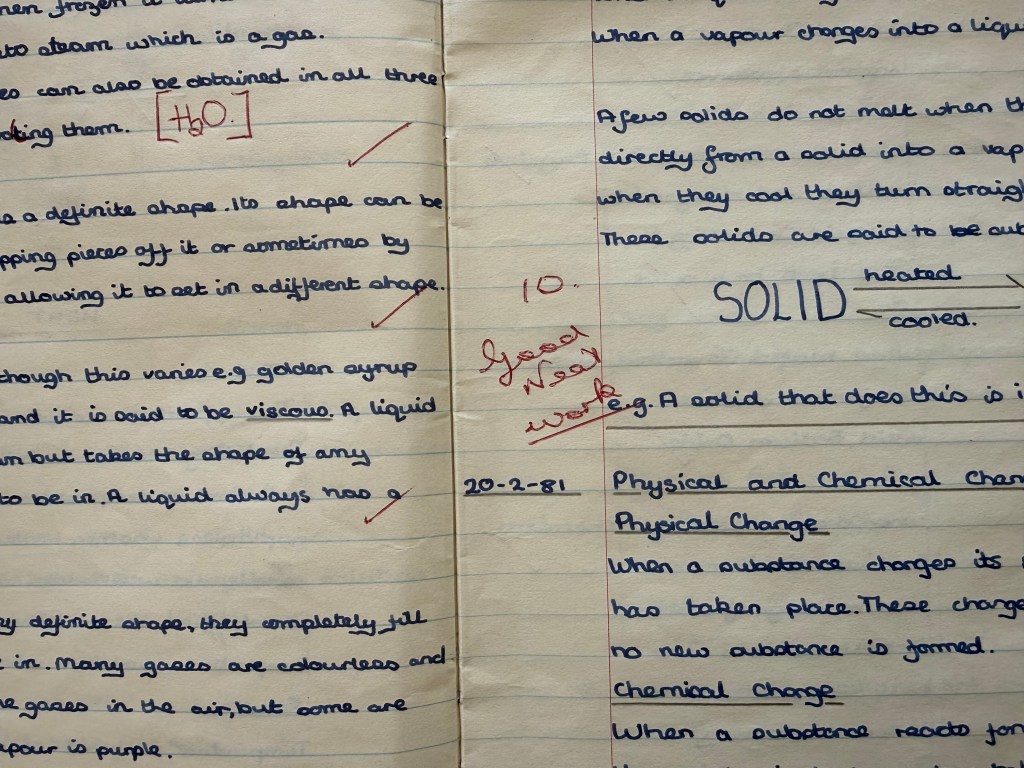 hen frozen it
to steam which is a gas.
es can also be obtained in all three
ting them. [H2O.]
a definite shape. Its shape can be
pping pieces off it or sometimes by
allowing it to set in a different shape.
though this varies e.g golden syrup
and it is said to be viscous. A liquid
n but takes the shape of any
to be in. A liquid always has a
ny definite shape, they completely fill
in. Many gases are colourless and
e gases in the air, but some are
apour is purple.
When a vapour changes into a liqu
A few solids do not melt when th
directly from a solid into a vap
when they cool they turn straigh
These solids are said to be sub
heated
SOLID
cooled.
10.
Good
Neat
work
e.g. A solid that does this is i
20-2-81 Physical and Chemical Chan
Physical Change
When a substance changes its
has taken place. These change
no new substance is formed.
Chemical Change
When a substance reacts for